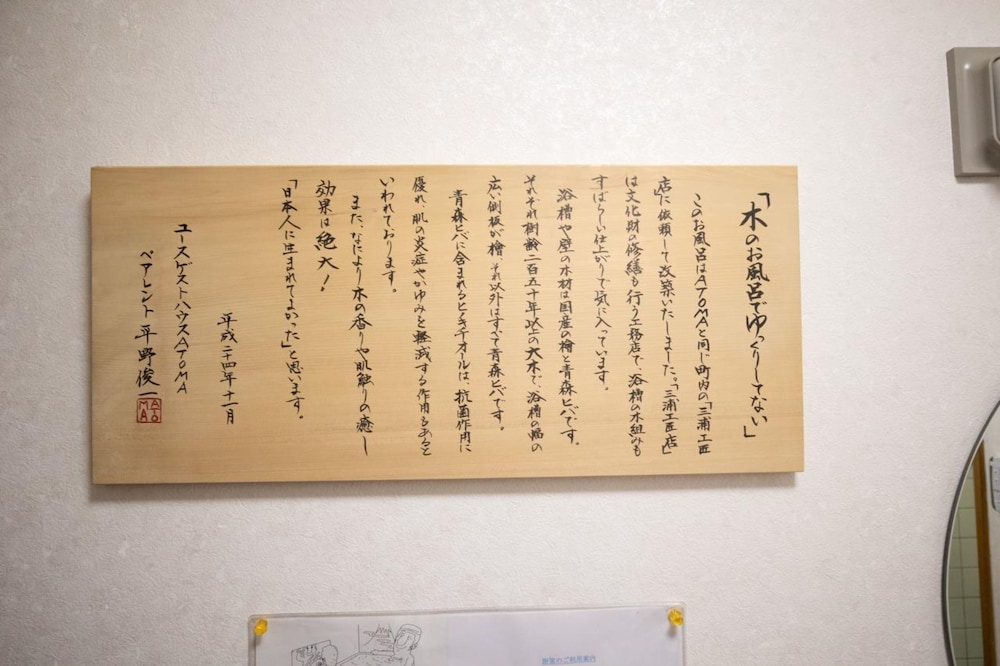 「木のお風呂でゆっくりしてない」
このお風呂はATOMAと同じ町内の「三浦工匠
店」に依頼して改築いたしました。「三浦工匠店」
は文化財の修繕も行う工務店で、浴槽の木組みも
すばらしい仕上がりで気に入っています。
浴槽や壁の木材は国産の檜と青森ヒバです。
それぞれ樹齢二百五十年以上の大木で、浴槽の幅の
広い側板が檜、それ以外はすべて青森ヒバです。
青森ヒバに含まれるヒノキチオールは、抗菌作用に
優れ、肌の炎症やかゆみを軽減する作用もあると
いわれております。
また、なにより木の香りや肌触りの癒し
効果は絶大！
「日本人に生まれてよかった」と思います。
平成二十四年十一月
ユースゲストハウスATOMA
ペアレント 平野俊一
ATO
MA